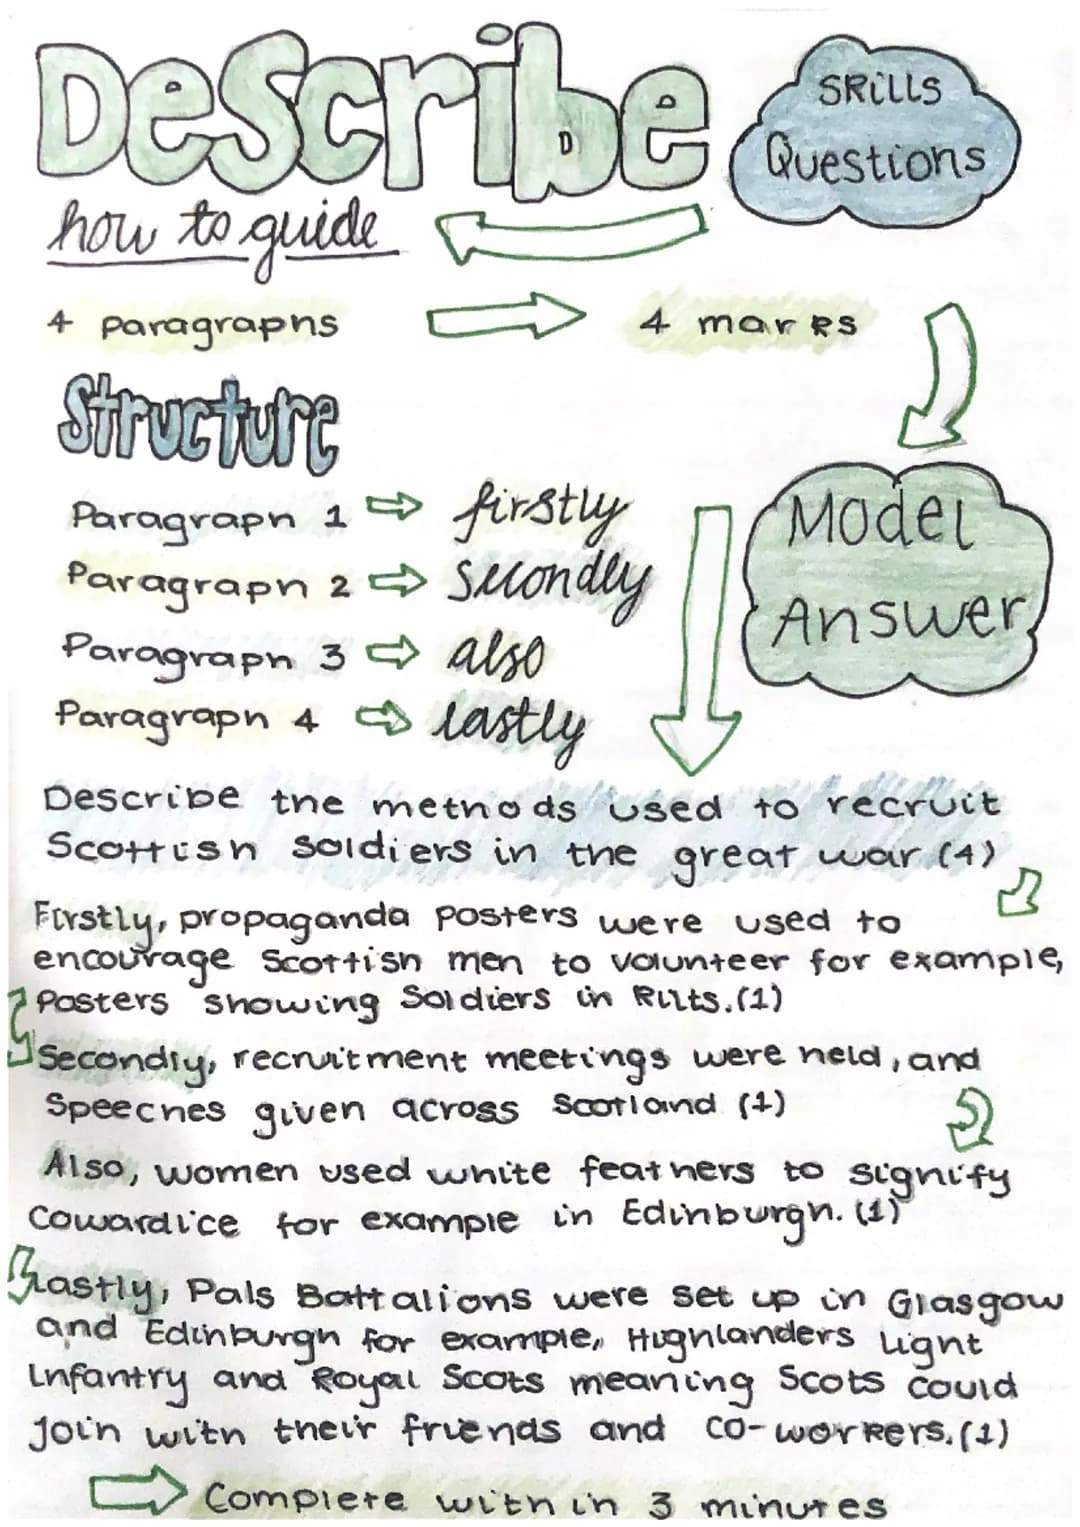 Describe
Skills
Questions
how to guide
4 paragraphs
4 marks
Structure
Paragraph 1 firstly
Paragraph 2 secondly
Paragraph 3 also
Paragraph 4 lastly
Model
Answer
Describe the methods used to recruit
Scottish soldiers in the great war (4)
Firstly, propaganda posters were used to
encourage Scottish men to volunteer for example,
Posters showing Soldiers in Kilts. (1)
Secondly, recruitment meetings were held, and
Speeches given across Scotland (1)
Also, women used white feathers to signify
cowardice for example in Edinburgh. (1)
Lastly, Pals Battalions were set up in Glasgow
and Edinburgh for example, Highlanders Light
Infantry and Royal Scots meaning Scots could
Join with their friends and co-workers. (1)
Complete within 3 minutes